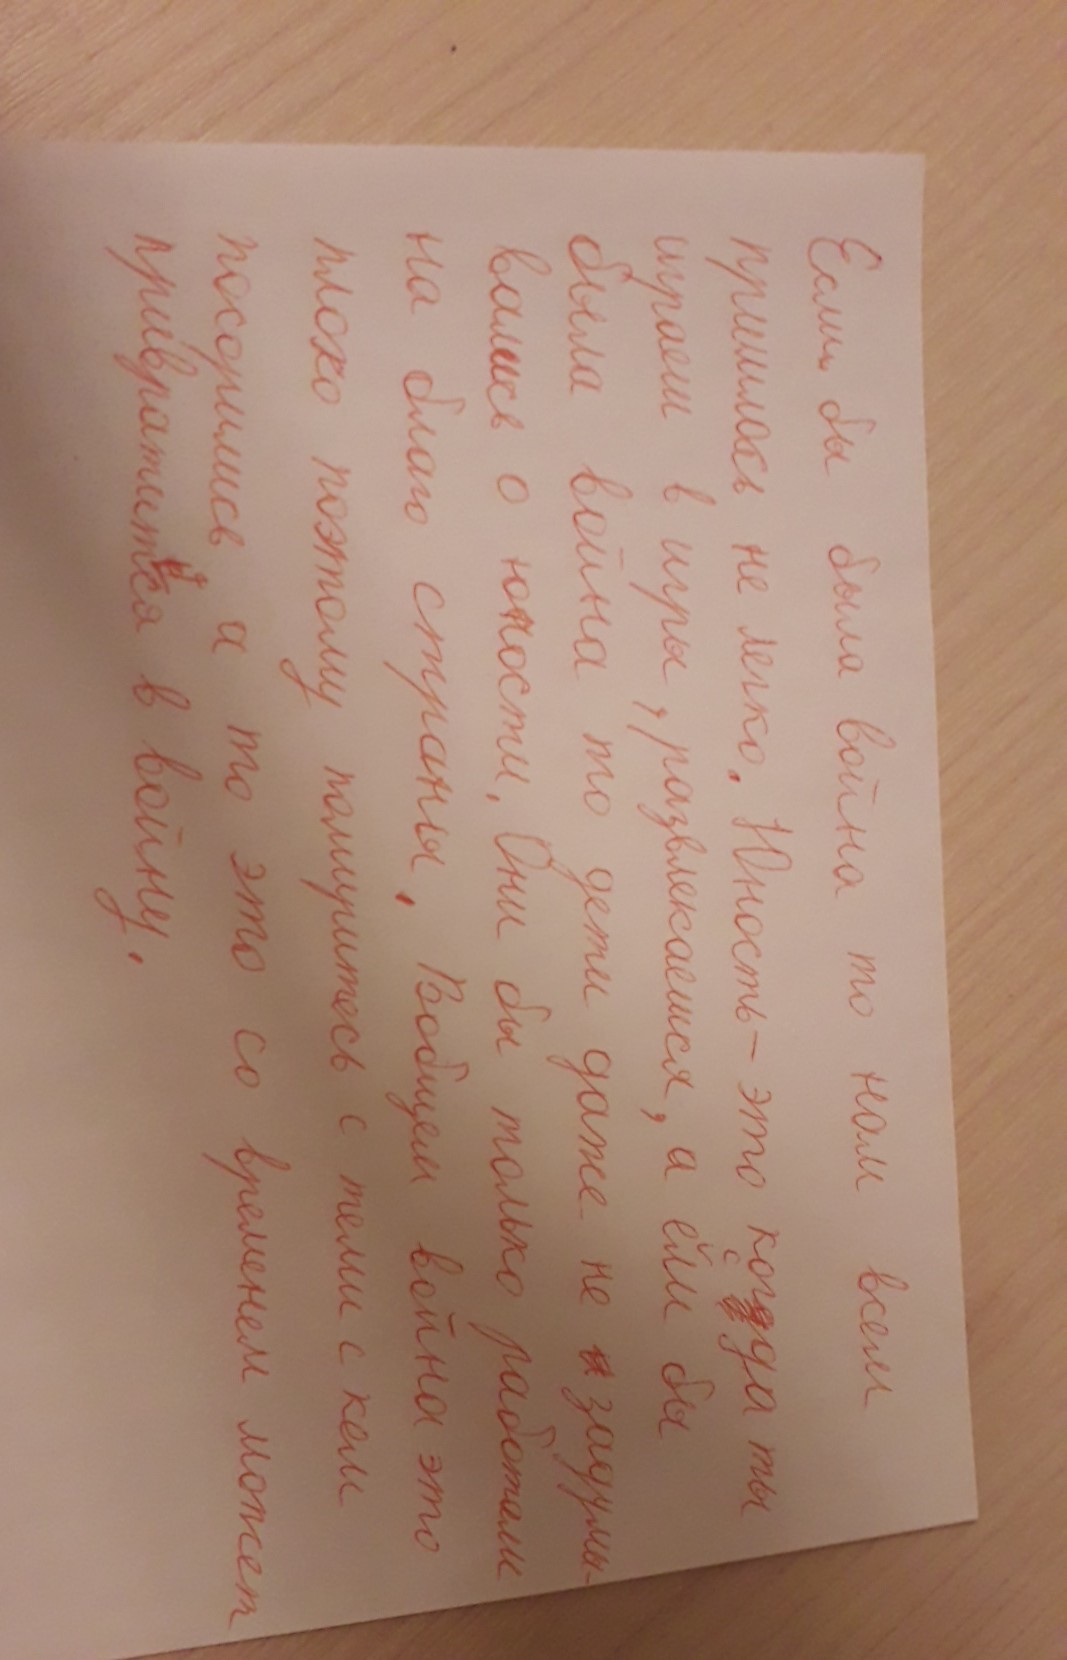 Если бы была война то нам всем
пришлось не легко. Юность - это когда ты
играеш в игры, развлекаешся, а ейли бы
была война то дети даже не задумы-
вались о юности. Они бы только работали
на благо страны. Вобщем война это
плохо поэтому помиритесь с теми с кем
посорились а то это со временем может
привратится в войну.